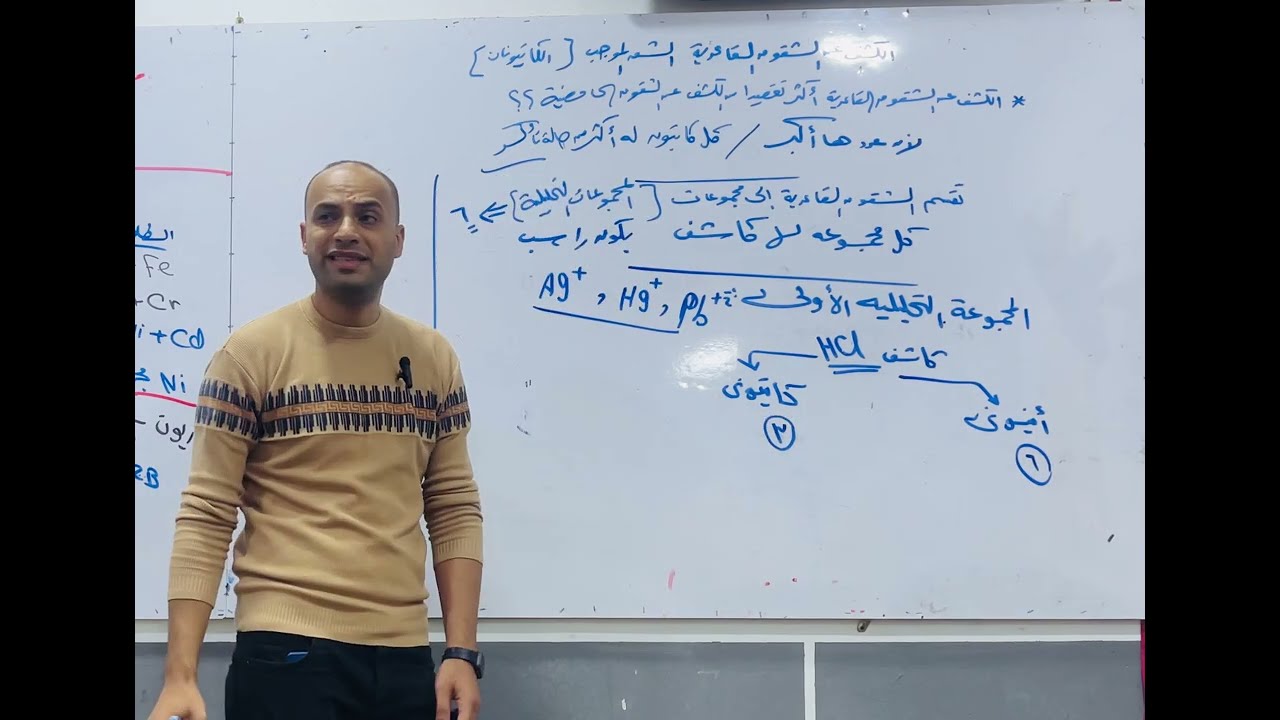 الكشف عن الشقوق القاعدية الشق الموجب {الكاتيونات}
* الكشف عن الشقوق القاعدية أكثر تعقيدا من الكشف عن الشقوق الحامضية ؟؟
لأن عددها أكبر / كل كاتيون له أكثر من حالة تأكسد
تقسم الشقوق القاعدية إلى مجموعات {المجموعات التحليلية} ⇒ ٦
كل مجموعه لها كاشف يكون راسب
المجموعة التحليليه الأولى : Ag+ , Hg+ , Pb+2
كاشف HCl
كاتيونى
٣
أنيونى
٦
Fe
+Cr
i + Cd
Ni